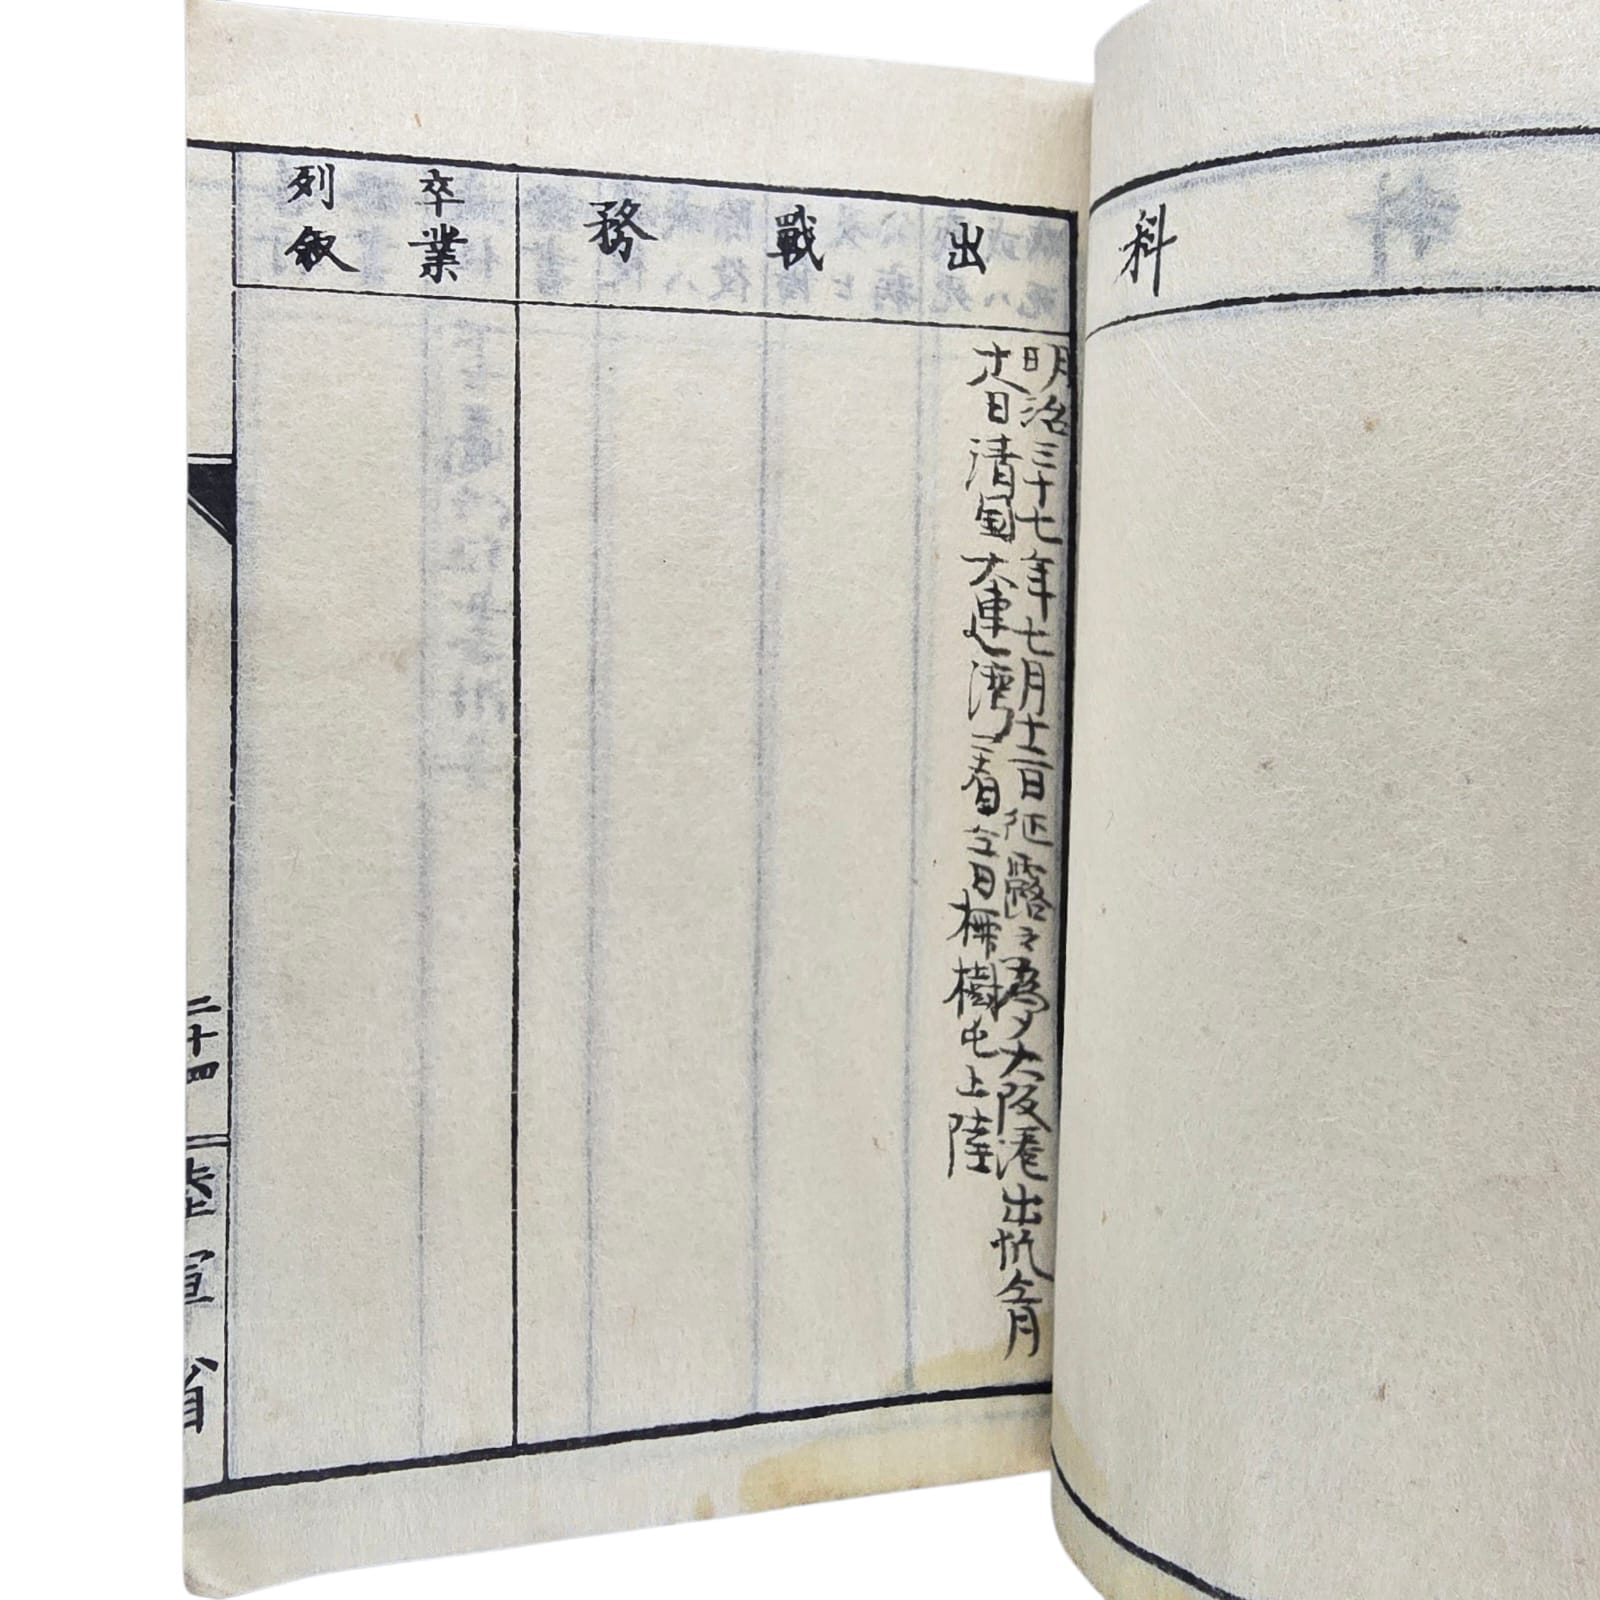 科
出戰務
明治三十七年七月十二日征露之為メ大阪港出帆仝月
廿日清国大連湾ニ着仝日柳樹屯上陸
卒業
列叙
二十四
陸軍省